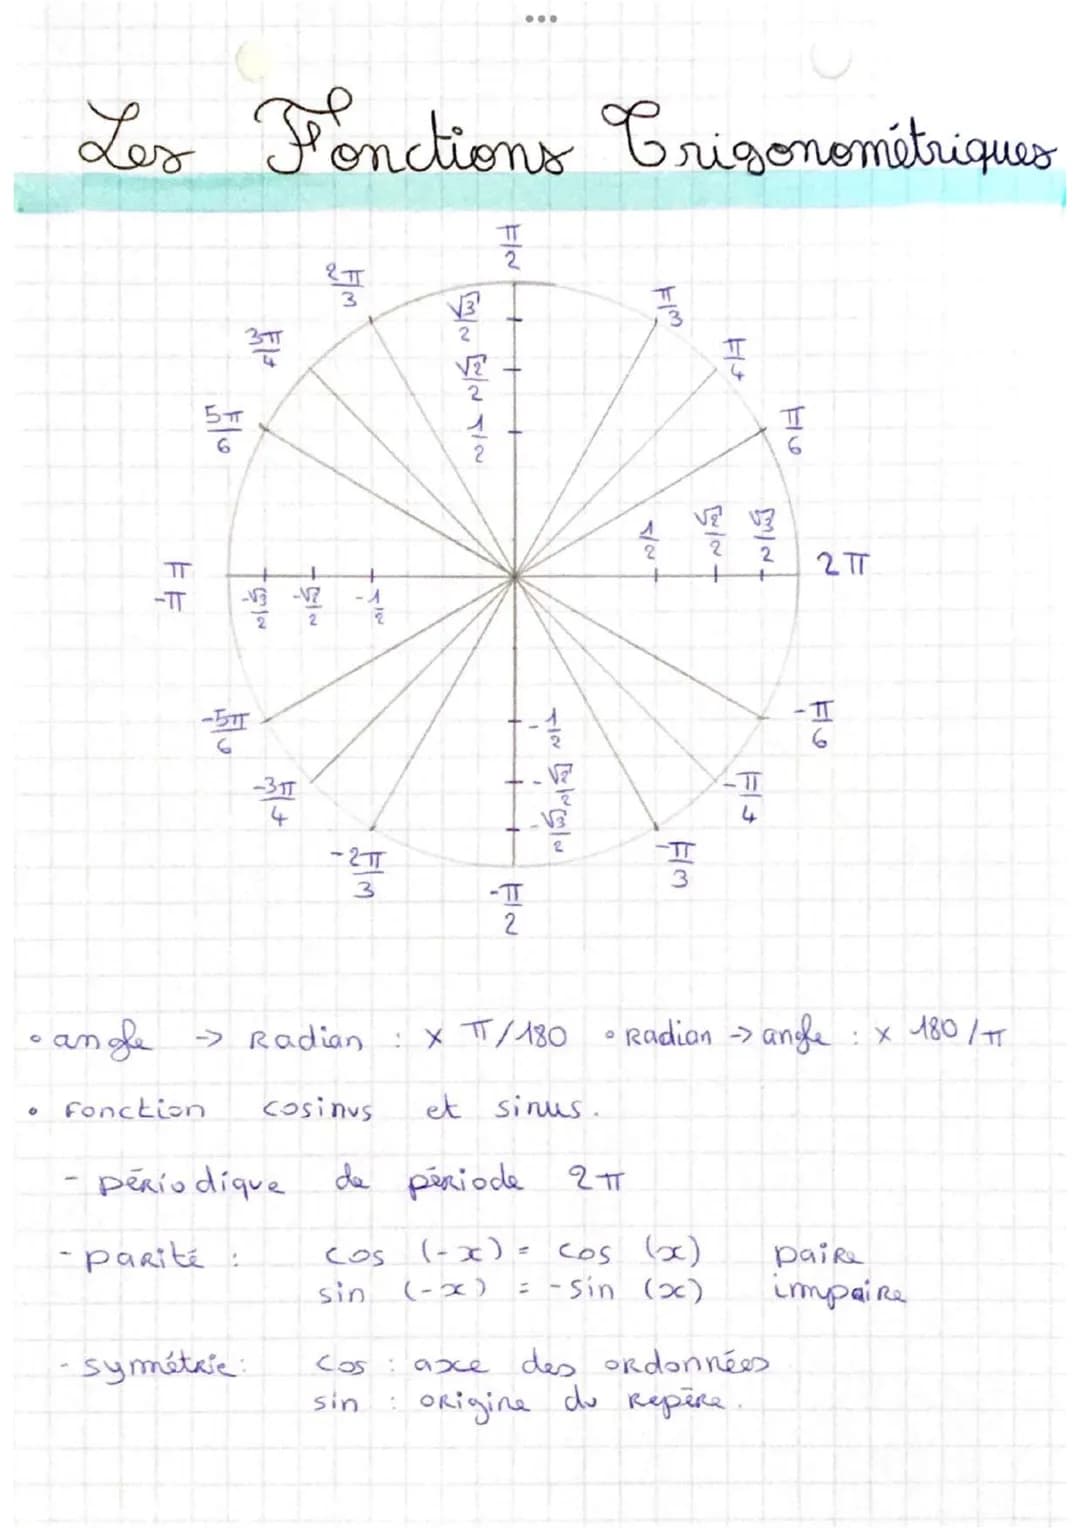 Les Fonctions Trigonométriques
π/2
2π/3
π/3
3π/4
π/4
5π/6
π/6
√3/2
√2/2
1/2
1/2 √2/2 √3/2
2π
π
-π
-√3/2 -√2/2 -1/2
-1/2
-√2/2
-√3/2
-5π/6
-π/6
-3π/4
-π/4
-2π/3
-π/3
-π/2
• angle -> Radian : x π/180 • Radian -> angle : x 180/π
• Fonction cosinus et sinus.
- périodique de période 2π
- parité : cos (-x) = cos (x) paire
sin (-x) = -sin (x) impaire
- symétrie : cos : axe des ordonnées
sin : origine du Repère.